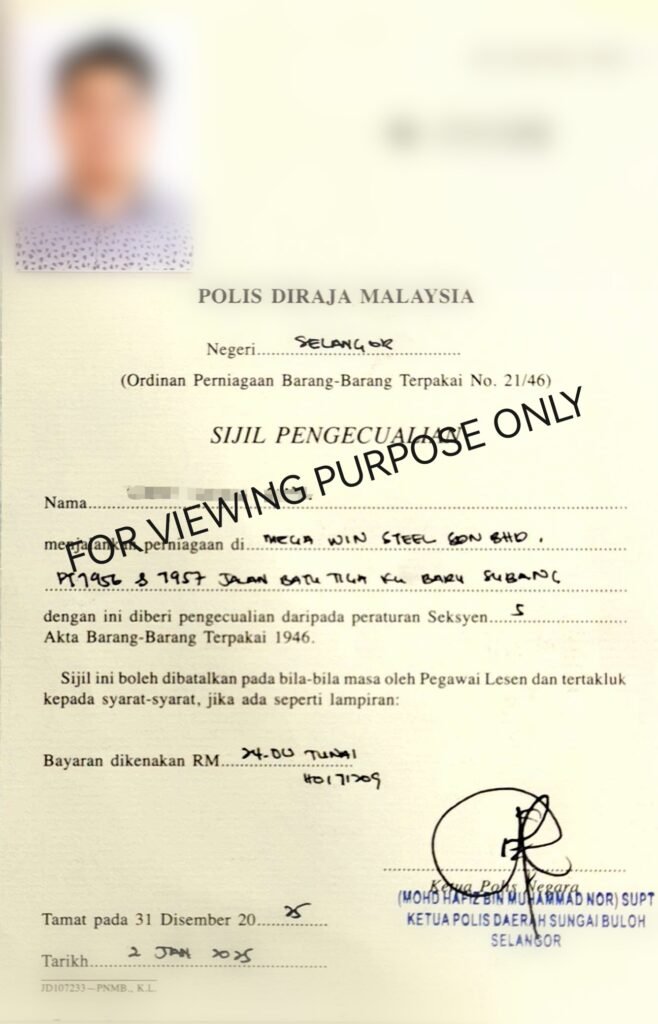 POLIS DIRAJA MALAYSIA
Negeri SELANGOR
(Ordinan Perniagaan Barang-Barang Terpakai No. 21/46)
SIJIL PENGECUALIAN
FOR VIEWING PURPOSE ONLY
Nama
menjalankan perniagaan di MEGA WIN STEEL SDN BHD.
PT 7956 & 7957 JALAN BATU TIGA KU BARU SUBANG
dengan ini diberi pengecualian daripada peraturan Seksyen 5
Akta Barang-Barang Terpakai 1946.
Sijil ini boleh dibatalkan pada bila-bila masa oleh Pegawai Lesen dan tertakluk
kepada syarat-syarat, jika ada seperti lampiran:
Bayaran dikenakan RM 24-00 TUNAI
H0171209
Ketua Polis Negara
(MOHD HAFIZ BIN MUHAMMAD NOR) SUPT
KETUA POLIS DAERAH SUNGAI BULOH
SELANGOR
Tamat pada 31 Disember 20 25
Tarikh 2 JAN 2025
JD107233—PNMB., K.L.